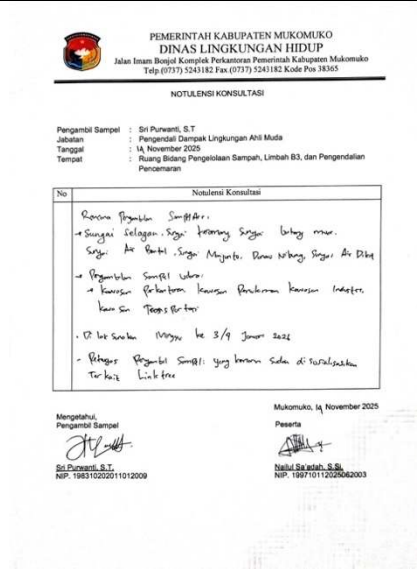 PEMERINTAH KABUPATEN MUKOMUKO
DINAS LINGKUNGAN HIDUP
Jalan Imam Bonjol Komplek Perkantoran Pemerintah Kabupaten Mukomuko
Telp.(0737) 5243182 Fax.(0737) 5243182 Kode Pos 38365
NOTULENSI KONSULTASI
Pengambil Sampel : Sri Purwanti, S.T
Jabatan : Pengendali Dampak Lingkungan Ahli Muda
Tanggal : 14 November 2025
Tempat : Ruang Bidang Pengelolaan Sampah, Limbah B3, dan Pengendalian
Pencemaran
No Notulensi Konsultasi
Rencana Pengambilan Sampel Air.
Sungai Selagan, Sungai
Sungai Air Bantal, Sungai Manjunto, Danau Nibung, Sungai Air Dikit
Pengambilan Sampel Udara.
Kawasan Perkantoran Kawasan Kawasan Industri,
Kawasan Transportasi
Minggu ke 3/4 Januari 2026
Petugas Pengambil Sampel yang sudah di sosialisasikan
Terkait Linktree
Mukomuko, 14 November 2025
Mengetahui,
Pengambil Sampel
Peserta
Sri Purwanti, S.T.
NIP. 198310202011012009
Nailul Sa'adah, S.Si.
NIP. 199710112025062003